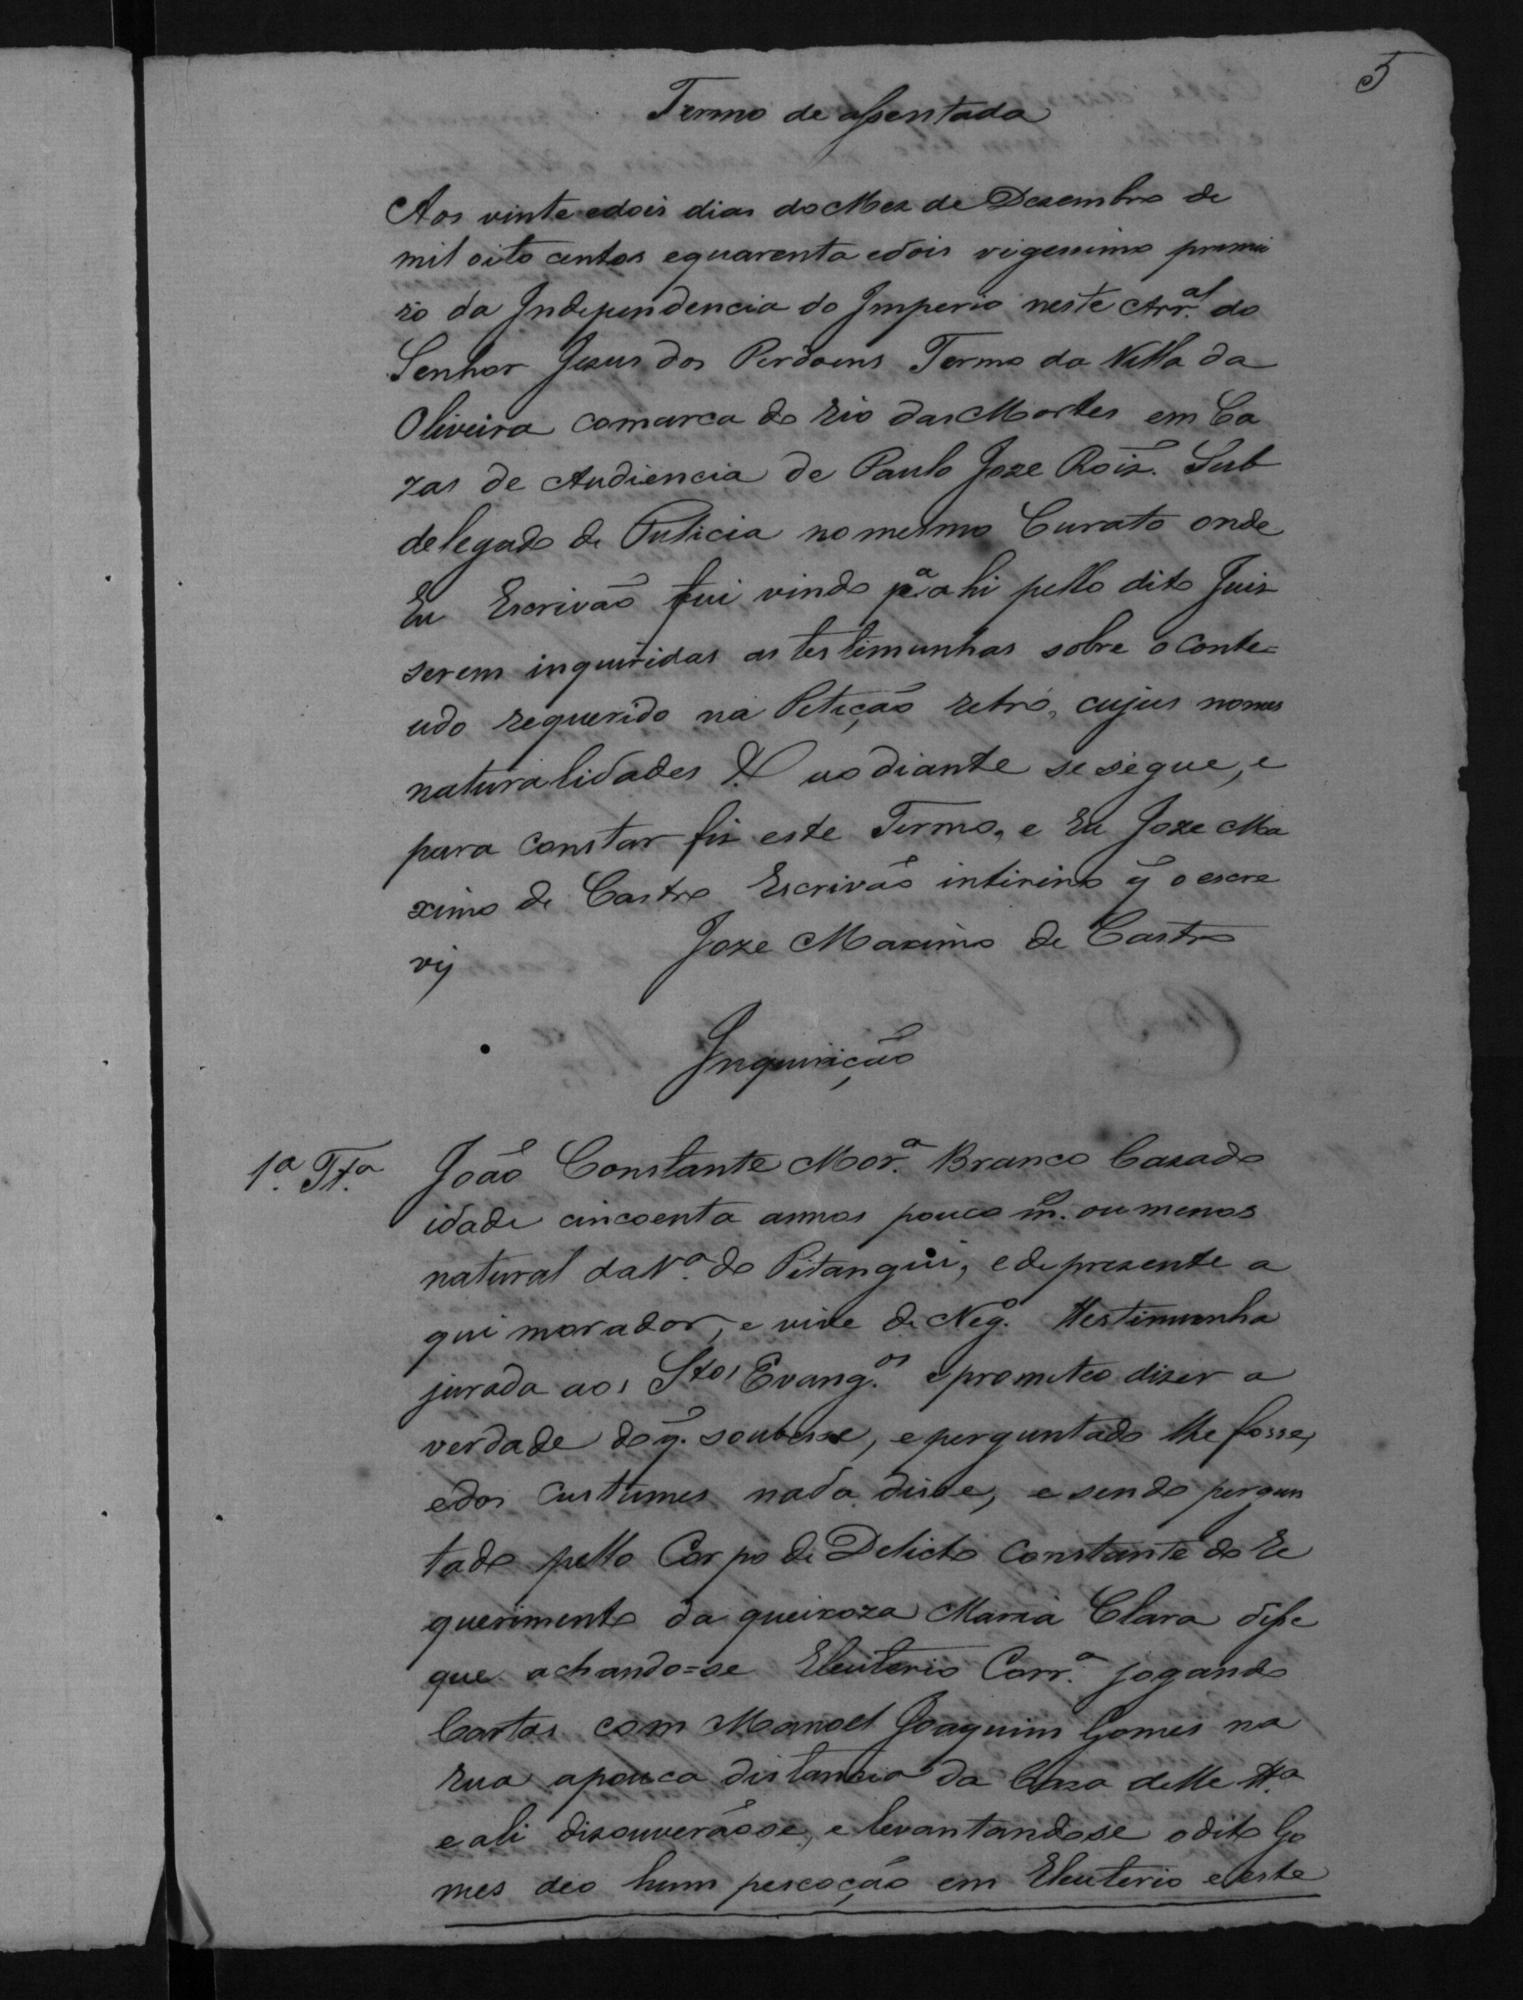 5
Termo de assentada
Aos vinte edois dias do Mez de Dezembro de
mil oito centos equarenta edois vigessimo primei
ro da Independencia do Imperio neste Arr.al do
Senhor Jezus dos Perdoens Termo da Villa da
Oliveira comarca do rio das Mortes em Ca
zas de Audiencia de Paulo Joze Roiz. Sub
delegado de Pulicia no mesmo Curato onde
Eu Escrivão fui vindo p.a ahi pello dito Juiz
serem inquiridas as testimunhas sobre o conte=
udo requerido na Petição retró, cujus nomes
naturalidades & ao diante se segue, e
para constar fiz este Termo, e Eu Joze Ma
ximo de Castro Escrivão intirino q̃ o escre
vy Joze Maximo de Castro
Inquirição
1.a Tt.a João Constante Mor.a Branco Cazado
idade cincoenta annos pouco m. ou menos
natural da V.a do Pitangui, e de prezente a
qui morador, e vive de Neg.o ttestimunha
jurada aos Stos Evang.os e prometeo dizer a
verdade do q̃. soubesse, e perguntado lhe fosse,
e dos custumes nada disse, e sendo pergun
tado pello Corpo de Delicto Constante do Re
querimento da queixoza Maria Clara disse
que achando=se Eleuterio Corr.a jogando
Cartas com Manoel Joaquim Gomes na
rua apouca distancia da Caza delle tt.a
e ali dizouverãose, e levantandose o dito Go
mes deo hum pescoção em Eleuterio e este